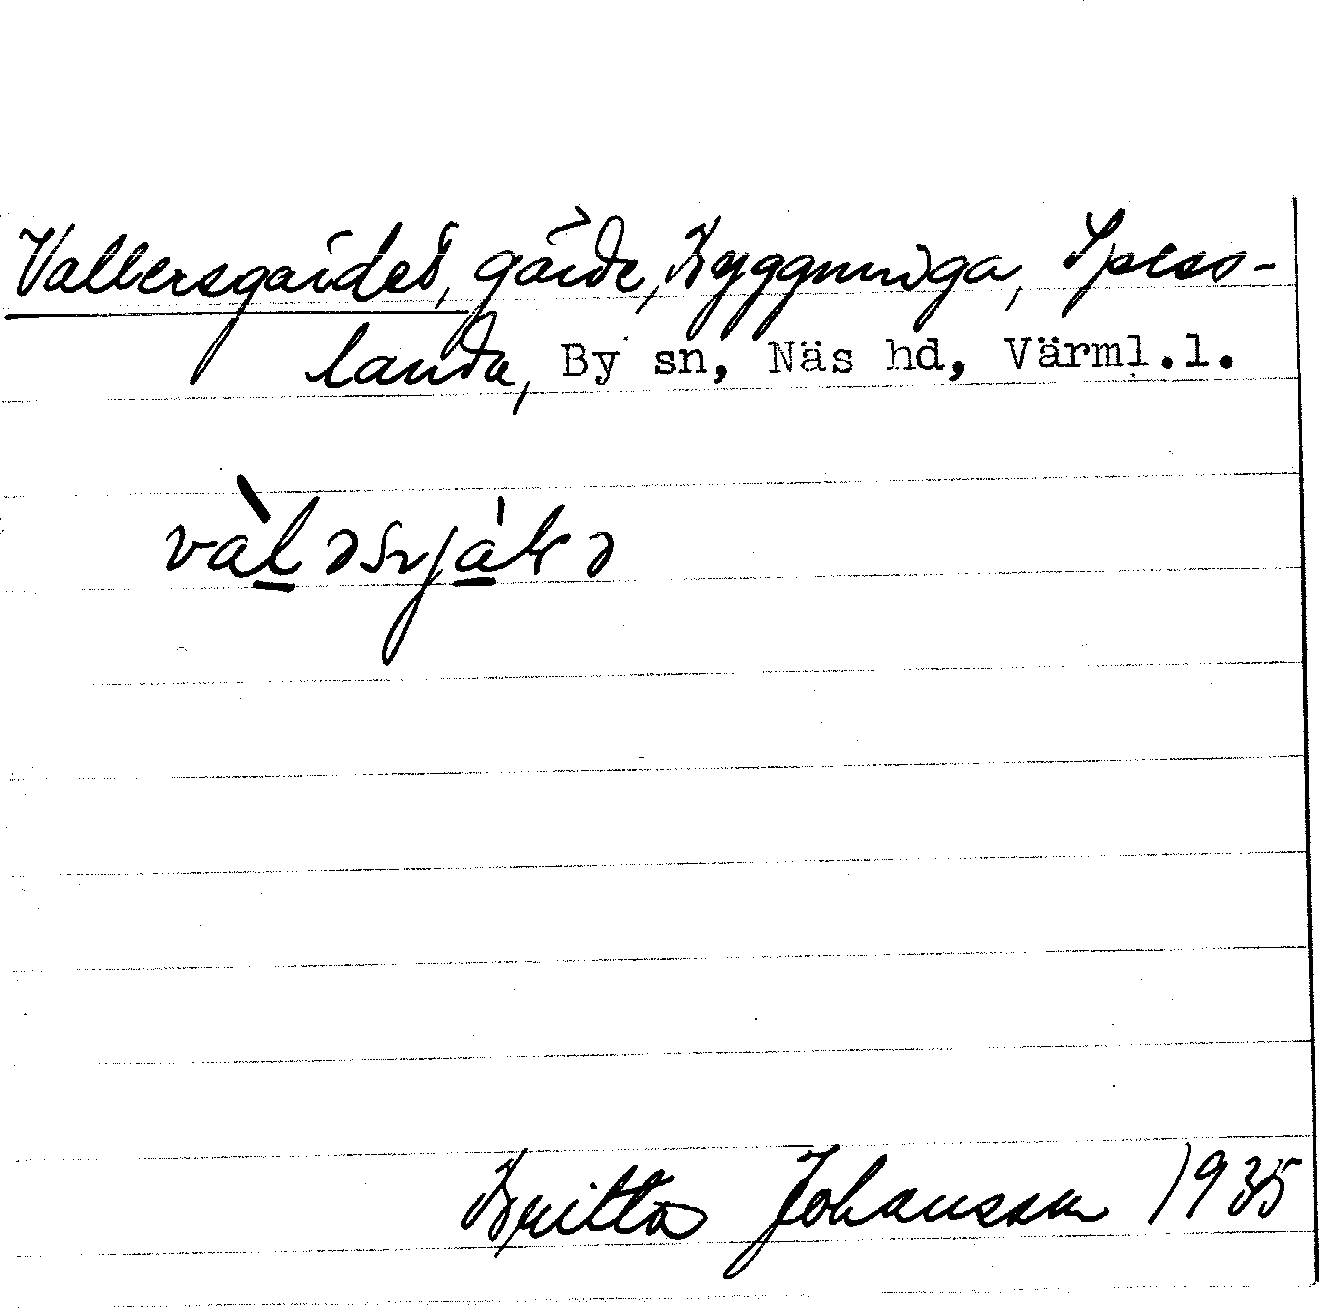 Vallersgärdet, gärde, Byggninga, Speso-
landa, By sn, Näs hd, Värml.l.
Britta Johansson 1935